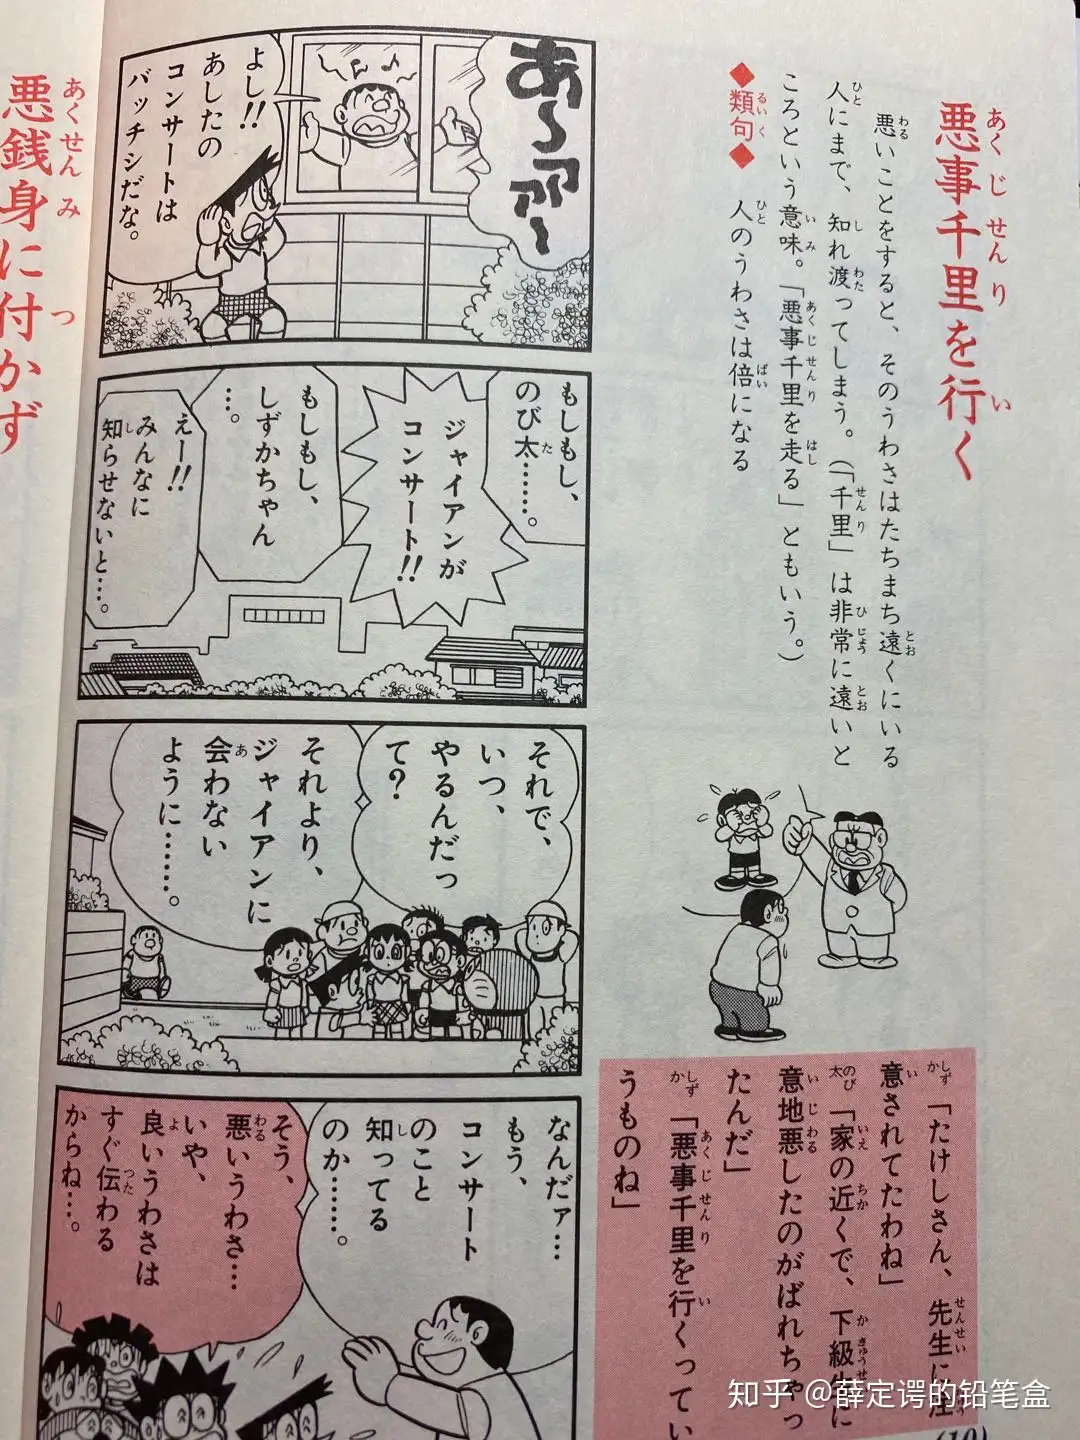 悪事千里を行く
あくじせんりい
悪いことをすると、そのうわさはたちまち遠くにいる
人にまで、知れ渡ってしまう。（「千里」は非常に遠いと
ころという意味。「悪事千里を走る」ともいう。）
◆類句◆ 人のうわさは倍になる
しずか「たけしさん、先生に注
意されてたわね」
のび太「家の近くで、下級生に
意地悪したのがばれちゃっ
たんだ」
しずか「悪事千里を行くってい
うものね」
あ〜ァァー
よし!!
あしたの
コンサートは
バッチシだな。
もしもし、
のび太……。
ジャイアンが
コンサート!!
もしもし、
しずかちゃん
…。
えー!!
みんなに
知らせないと…。
それで、
いつ、
やるんだっ
て？
それより、
ジャイアンに
会わない
ように……。
なんだァ…
もう、
コンサート
のこと
知ってる
のか……。
そう、
悪いうわさ…
いや、
良いうわさは
すぐ伝わる
からね…。
悪銭身に付かず
あくせんみつ
(10)
知乎 @薛定谔的铅笔盒